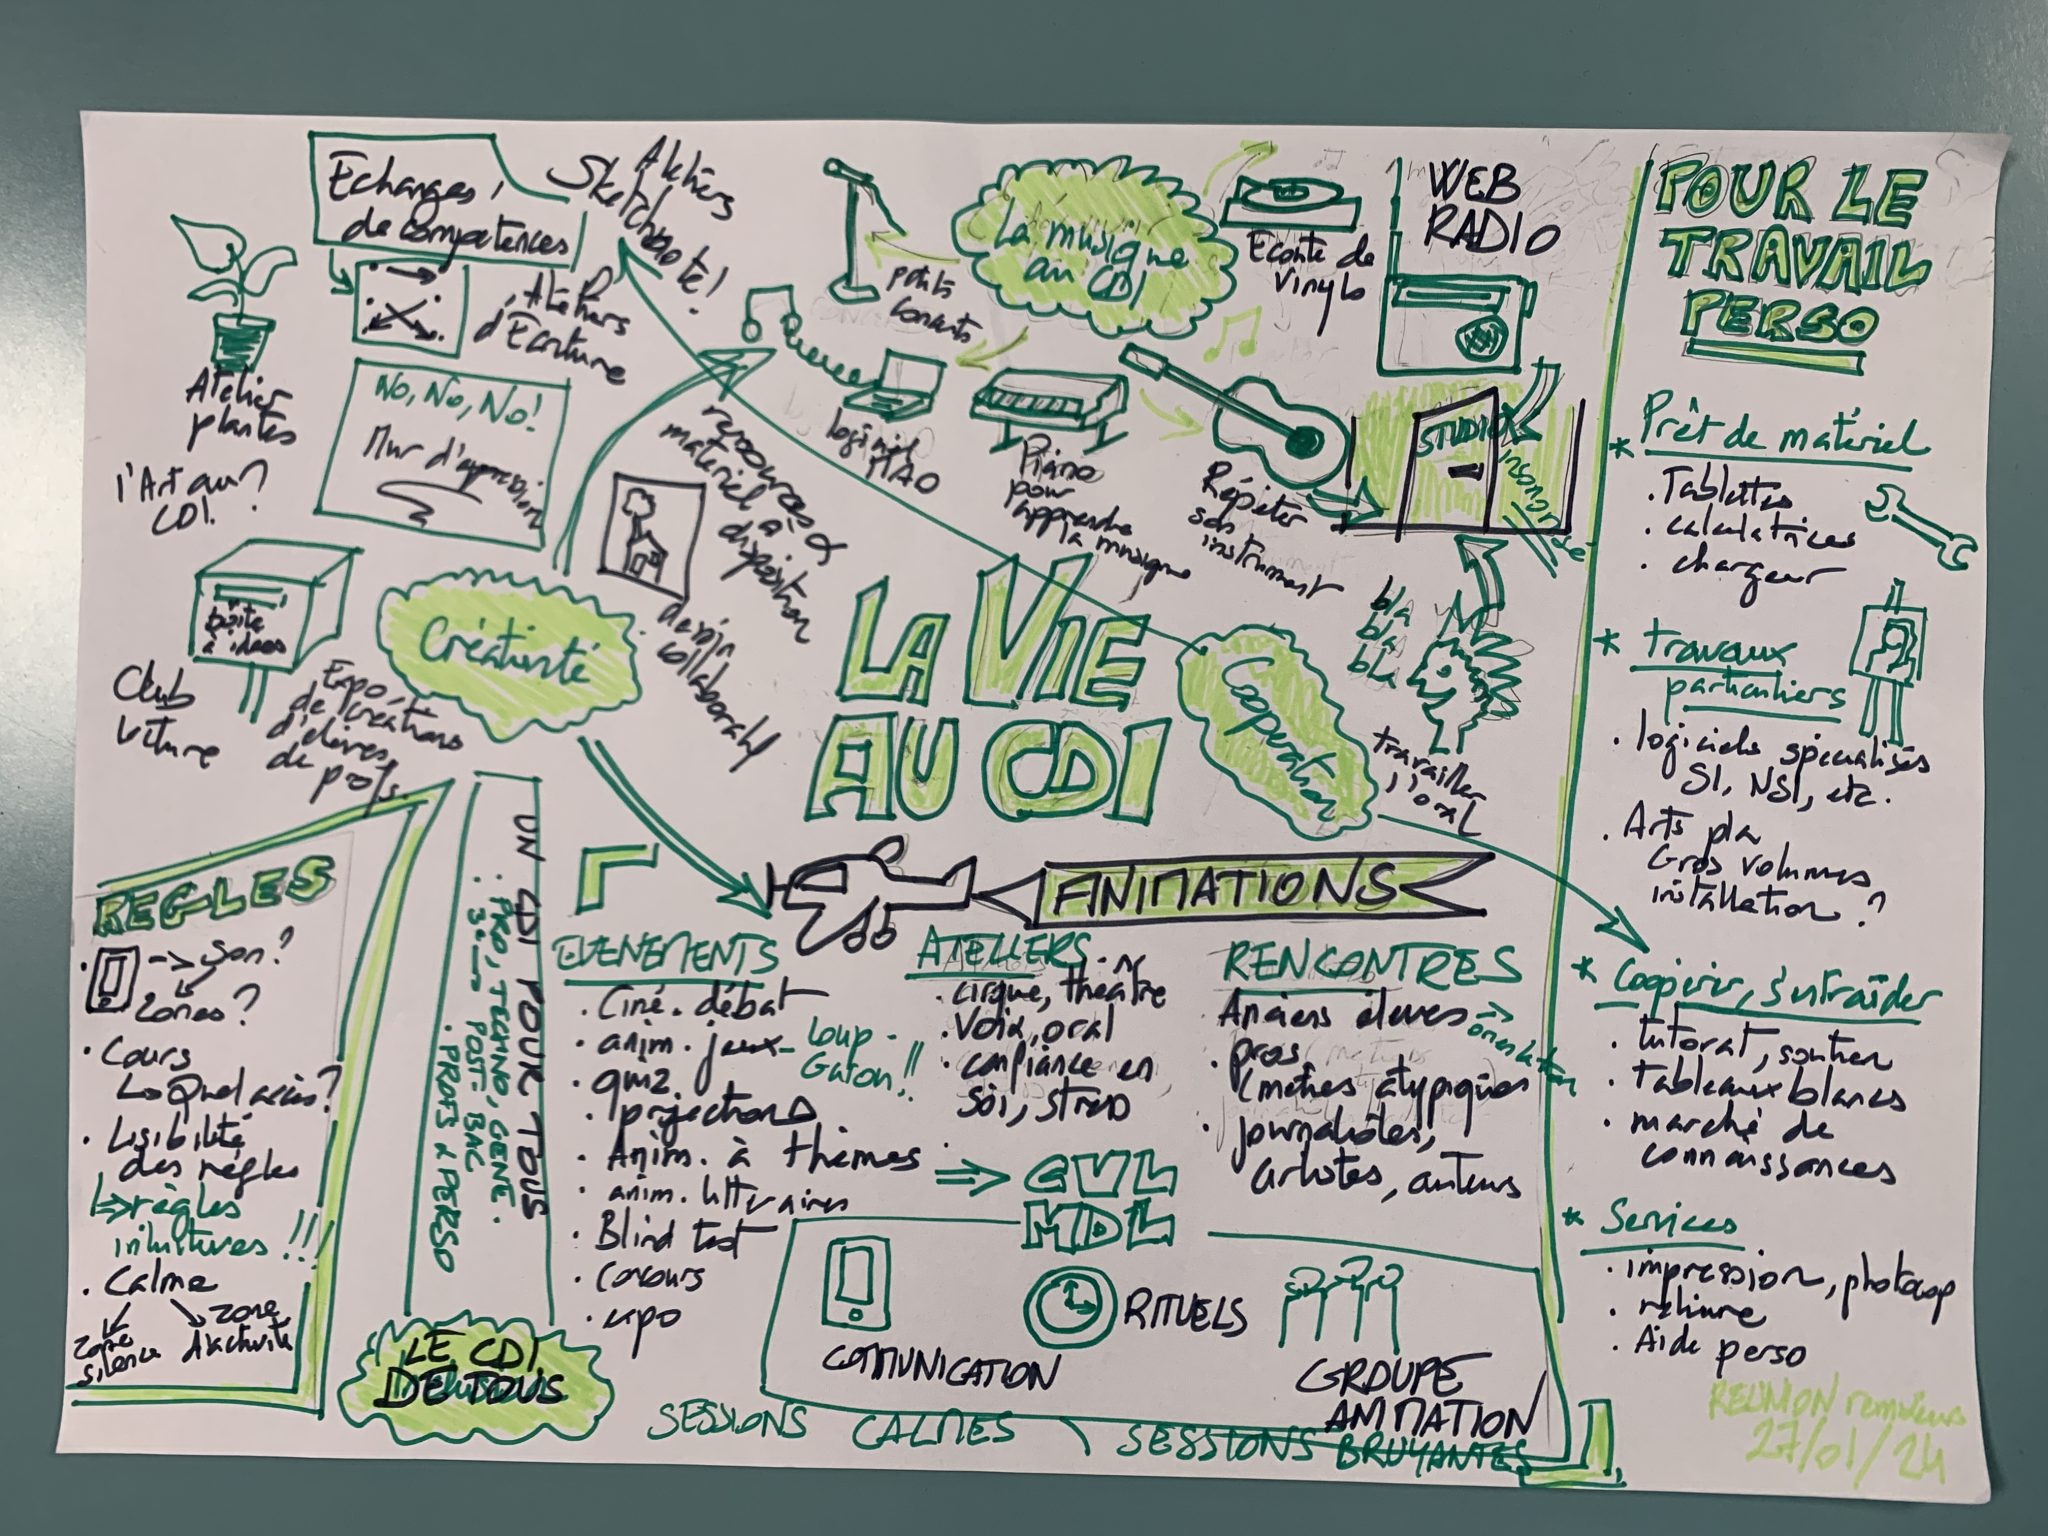 Echanges
de compétences
Ateliers
Sketchnote!
Ateliers
d'Ecriture
Atelier
plantes
l'Art au
CDI?
NO, NO, NO!
Mur d'expression
boîte
à idées
Club
lecture
Expo
de créations
d'élèves
de profs.
Créativité
ressources &
matériel à
disposition
dessin
collaboratif
La musique
au CDI
petits
concerts
Ecoute de
vinyls
logiciel
MAO
Piano
pour
apprendre
la musique
Répéter
son
instrument
WEB
RADIO
STUDIO
insonorisé
bla
bla
bla
travailler
l'oral
LA VIE
AU CDI
Coopération
REGLES
-> son?
zones?
. Cours
Quel accès?
. Lisibilité
des règles
règles
intuitives!!!
. Calme
zone
silence
zone
d'activité
UN CDI POUR TOUS
. PRO, TECHNO, GENE.
POST-BAC
. PROFS & PERSO
LE CDI
DE TOUS
ANIMATIONS
EVENEMENTS
. Ciné-débat
. anim. jeux - Loup-
Garou!!
. quiz
. projections
. Anim. à thèmes
. anim. littéraires
. Blind test
. Concours
. expo
ATELIERS
. cirque, théâtre
. Voix, oral
. confiance en
soi, stress
=> CVL
MDL
RENCONTRES
Anciens élèves -> orientation
. pros
(métiers atypiques
. journalistes,
artistes, auteurs
COMMUNICATION
RITUELS
GROUPE
ANIMATION
SESSIONS CALMES \ SESSIONS BRUYANTES
POUR LE
TRAVAIL
PERSO
* Prêt de matériel
. Tablettes
. calculatrices
. chargeur
* travaux
particuliers
. logiciels spécialisés
SI, NSI, etc.
. Arts pla
Gros volumes
installation?
* Coopérer, s'entraider
. tutorat, soutien
. tableaux blancs
. marché de
connaissances
* Services
. impression, photocop
. reliure
. Aide perso
REUNION
27/01/24